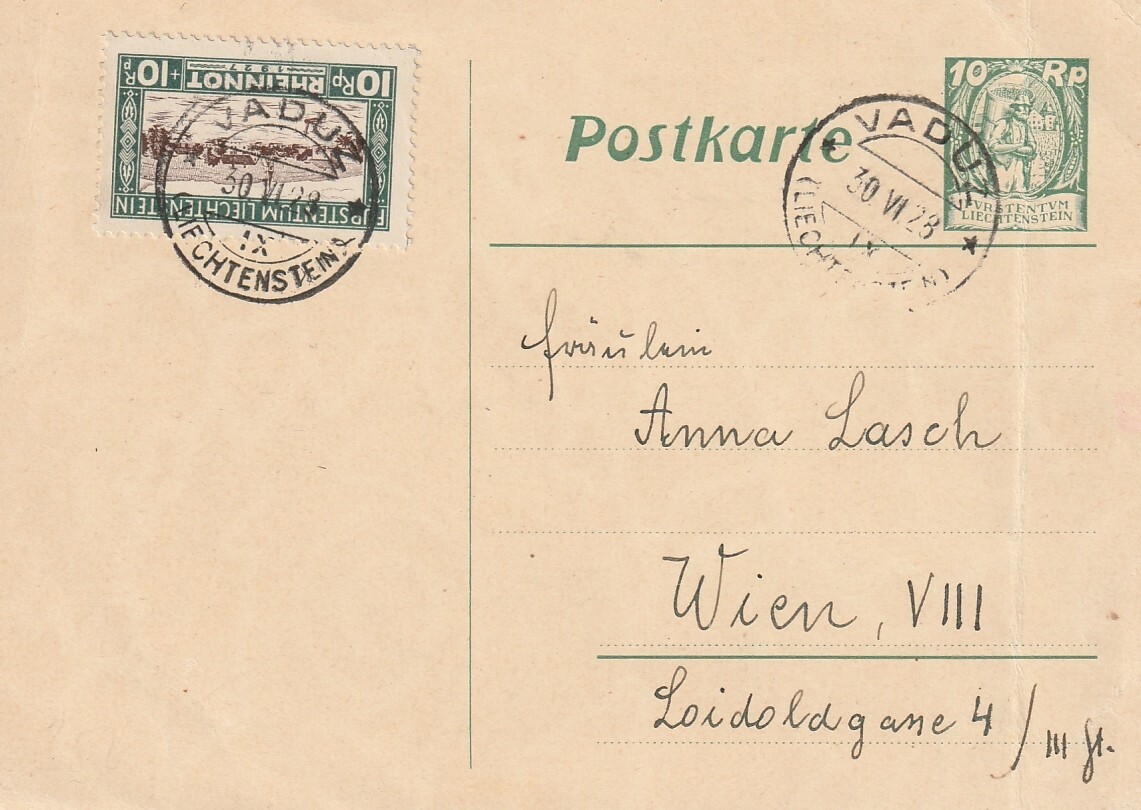 10 Rp + 10 Rp
RHEINNOT
1927
FÜRSTENTUM LIECHTENSTEIN
VADUZ
30 VI 28
IX
(LIECHTENSTEIN)
Postkarte
10 Rp
FVRSTENTVM
LIECHTENSTEIN
VADUZ
30 VI 28
IX
(LIECHTENSTEIN)
Fräulein
Anna Lasch
Wien, VIII
Loidoldgasse 4 / III St.